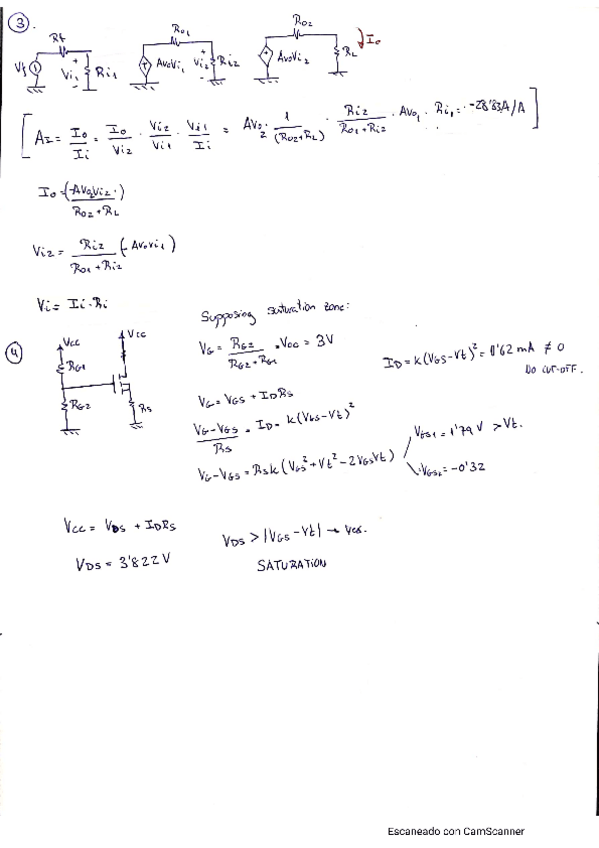 3.
Rf
Ro1
Ro2
Io
Vf
+
Vi1
-
Ri1
Av0Vi1
+
Vi2
-
Ri2
Av0Vi2
RL
[AI = Io/Ii = Io/Vi2 · Vi2/Vi1 · Vi1/Ii = Av02 · 1/(Ro2+RL) · Ri2/(Ro1+Ri2) · Av01 · Ri1 = -28'83A/A]
Io = (-Av0Vi2·)/(Ro2+RL)
Vi2 = Ri2/(Ro1+Ri2) (-Av0Vi1)
Vi = Ii·Ri
4
Vcc
Vcc
RG1
RG2
Rs
Supposing saturation zone:
VG = RG2/(RG2+RG1) · Vcc = 3V
ID = k(VGS-Vt)² = 0'62 mA ≠ 0
No cut-off.
VG = VGS + IDRS
(VG-VGS)/RS = ID = k(VGS-Vt)²
VG-VGS = RSk(VGS²+Vt²-2VGSVt)
VGS1 = 1'79 V > Vt.
VGS2 = -0'32
Vcc = VDS + IDRS
VDS > |VGS-Vt| → yes.
VDS = 3'822V
SATURATION
Escaneado con CamScanner